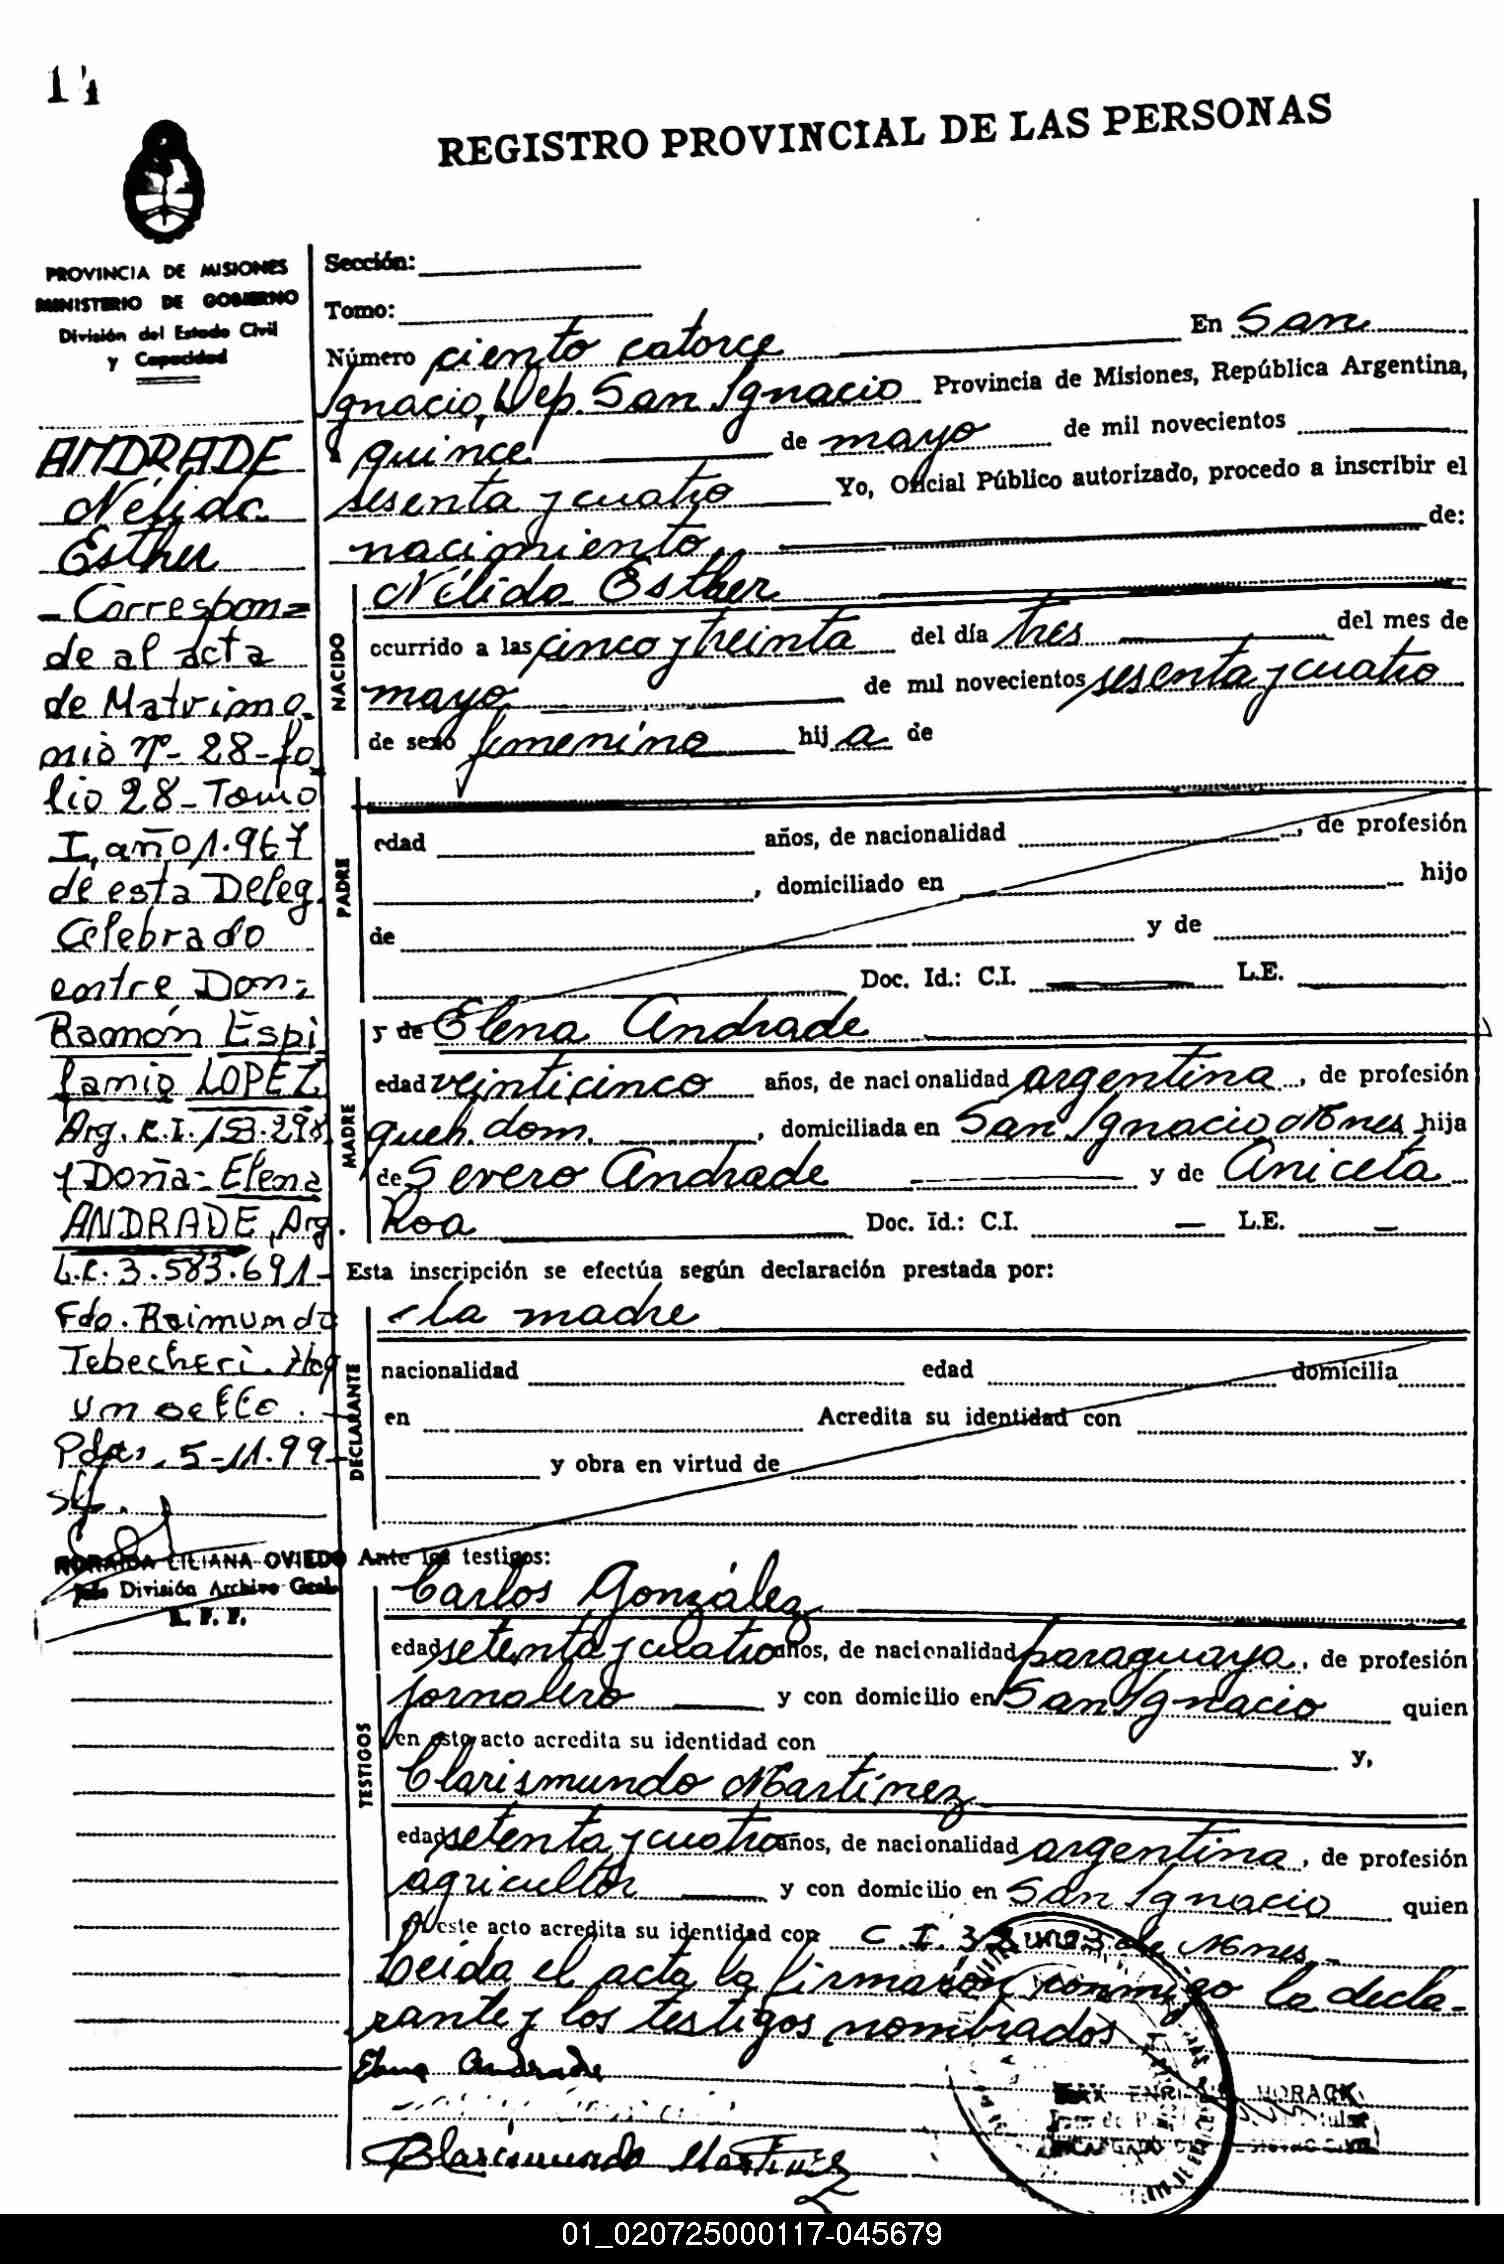 REGISTRO PROVINCIAL DE LAS PERSONAS
PROVINCIA DE MISIONES
MINISTERIO DE GOBIERNO
División del Estado Civil
y Capacidad
ANDRADE
Nélida
Esther
- Correspon=
de al acta
de Matrimo
nio nº- 28- fo
lio 28 - Tomo
I, año 1.967
de esta Deleg.
Celebrado
entre Don:
Ramón Espi
LOPEZ
Arg. C.I. 153.298
y Doña: Elena
ANDRADE, Arg.
L.C. 3.583.691-
Fdo. Raimundo
Tebecheri. Hay
un sello.-
Pdas, 5-11-99-
NORAIDA LILIANA OVIEDO
Jefe División Archivo Gral.
Sección:
Tomo:
Número ciento catorce En San
Ignacio, Dep. San Ignacio Provincia de Misiones, República Argentina,
a quince de mayo de mil novecientos
sesenta y cuatro Yo, Oficial Público autorizado, procedo a inscribir el
nacimiento de:
NACIDO
Nélida Esther
ocurrido a las cinco y treinta del día tres del mes de
mayo de mil novecientos sesenta y cuatro
de sexo femenino hija de
PADRE
edad años, de nacionalidad , de profesión
, domiciliado en hijo
de y de
Doc. Id.: C.I. L.E.
MADRE
y de Elena Andrade
edad veinticinco años, de nacionalidad argentina, de profesión
queh. dom. , domiciliada en San Ignacio Mnes hija
de Severo Andrade y de Aniceta
Roa Doc. Id.: C.I. — L.E. —
Esta inscripción se efectúa según declaración prestada por:
DECLARANTE
- la madre
nacionalidad edad domicilia
en Acredita su identidad con
y obra en virtud de
Ante los testigos:
TESTIGOS
Carlos González
edad setenta y cuatro años, de nacionalidad paraguaya, de profesión
jornalero y con domicilio en San Ignacio quien
en esto acto acredita su identidad con y,
Clarismundo Martínez
edad setenta y cuatro años, de nacionalidad argentina, de profesión
agricultor y con domicilio en San Ignacio quien
en este acto acredita su identidad con C.I. de Mnes.-
Leida el acta la firmaron conmigo la decla-
rante y los testigos nombrados
Elena Andrade
Martinez
HORACK
01_020725000117-045679